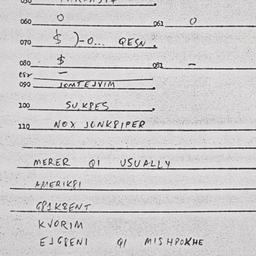 060 O 061 O
070 $ )-O... QESN?
080 $ 081 –
090 JOMTEJVIM
100 SU,KPES
110 NOX JUNKPIPER
MERER QI USUALLY
AMERIKPI
GPIKPENT
KVORIM
EJGPENI QI MISHPOKHE